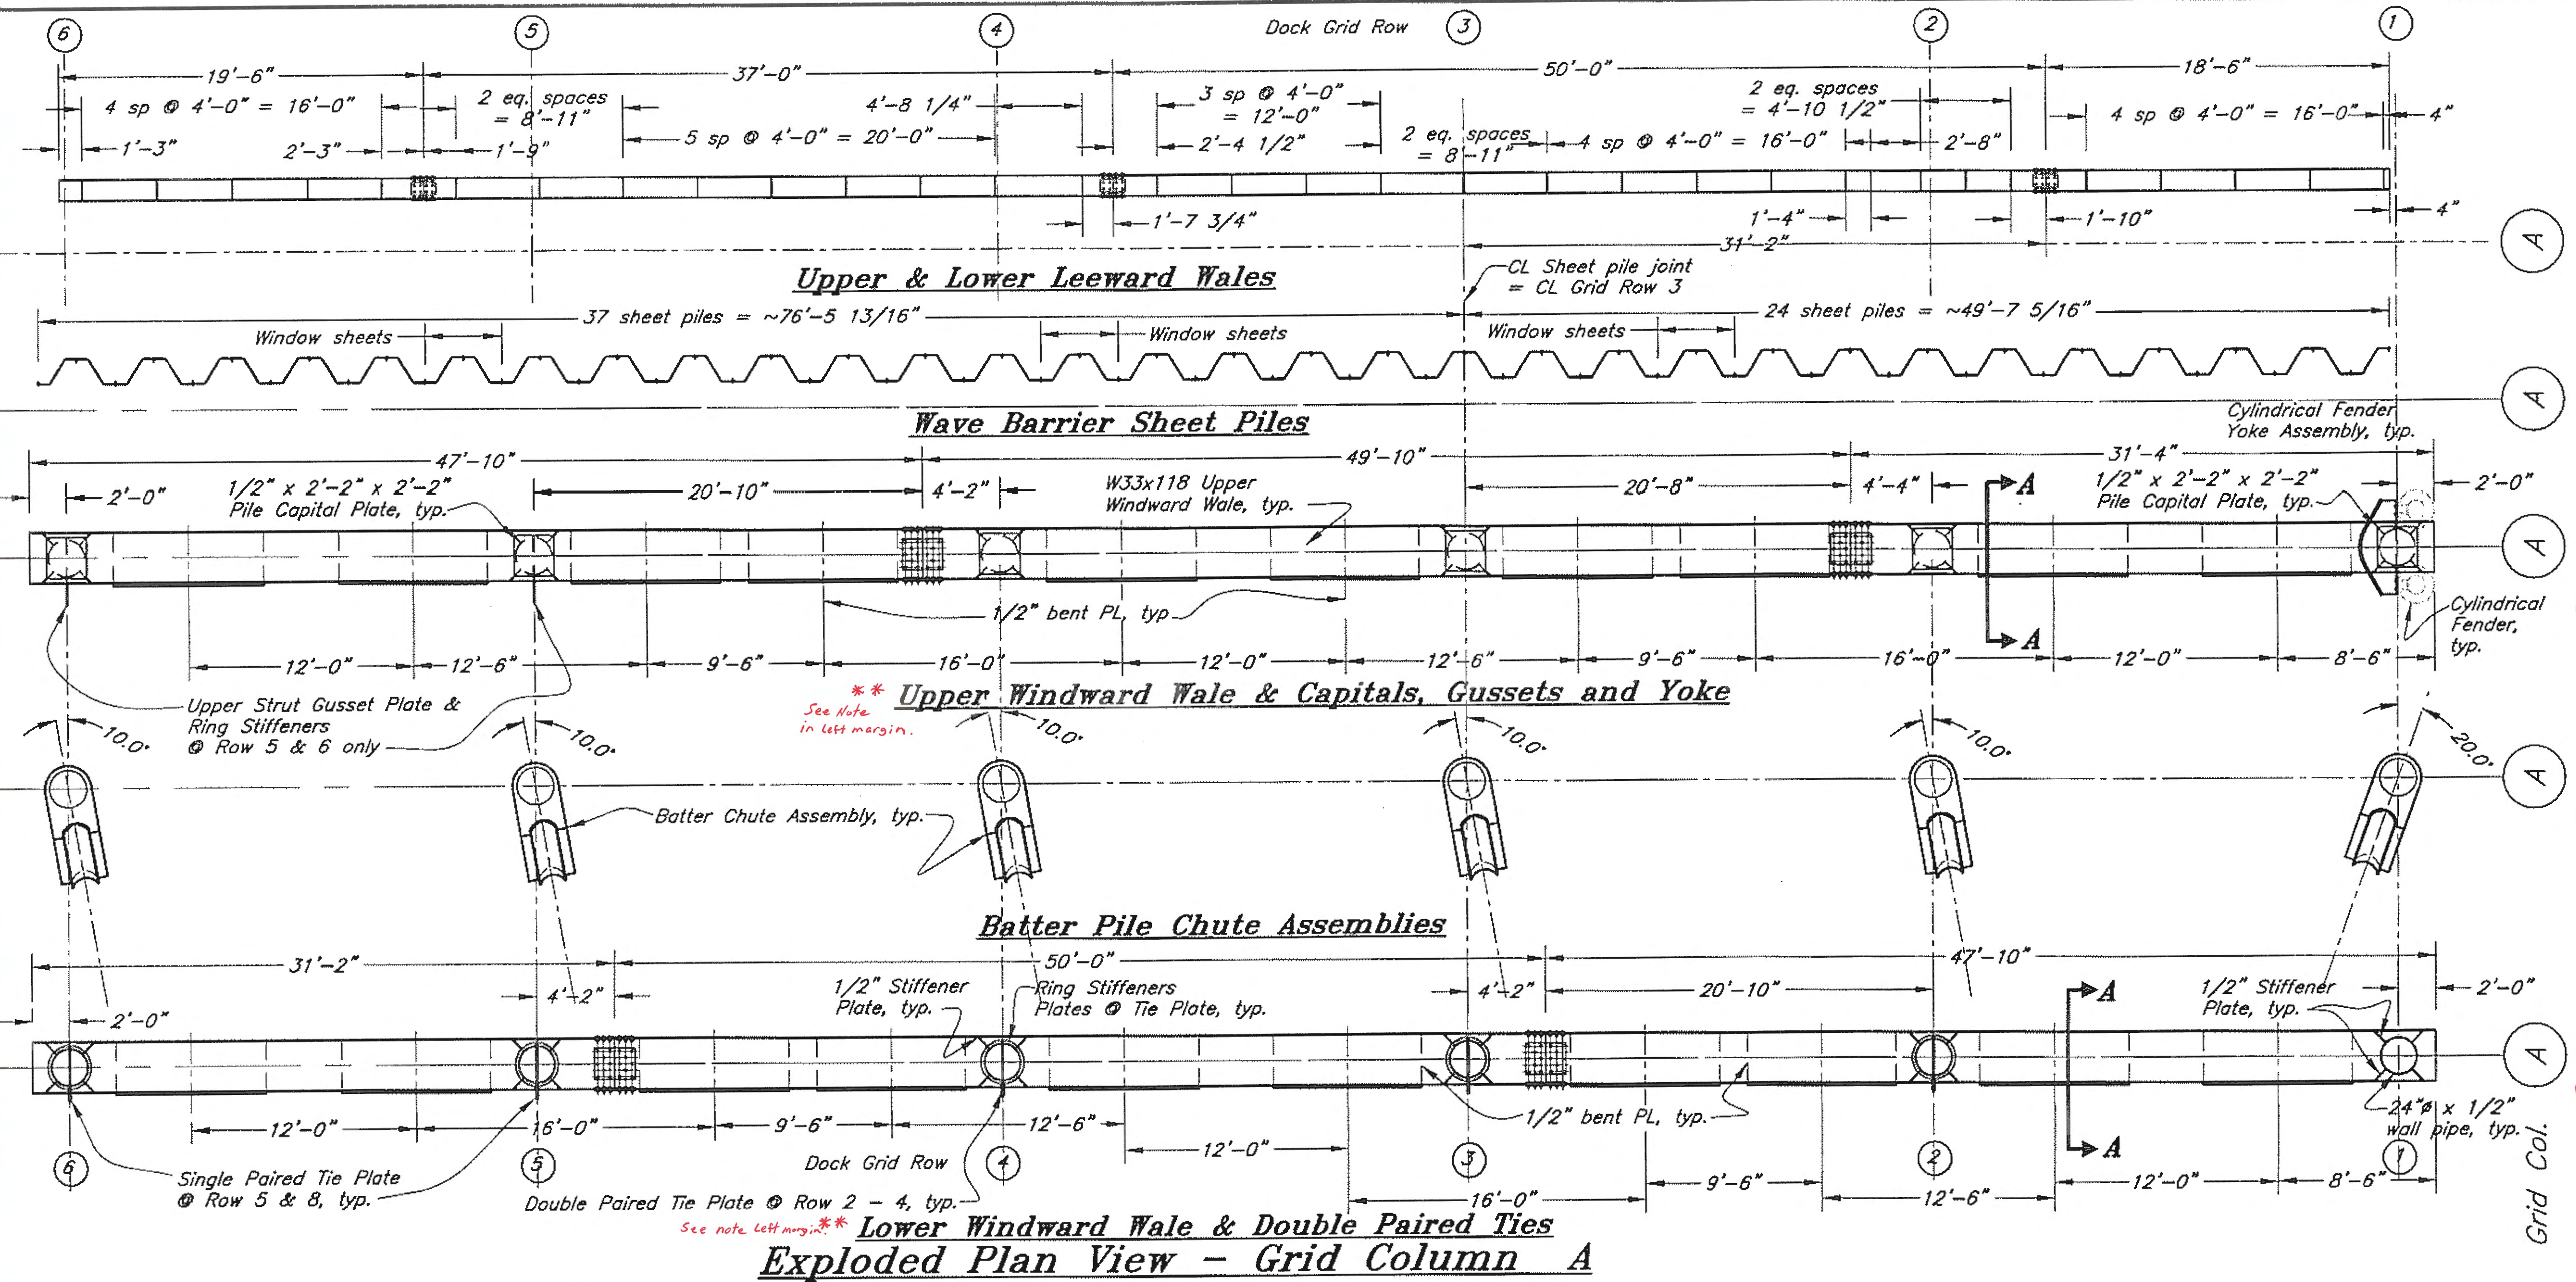 6
5
4
Dock Grid Row
3
2
1
19'-6"
37'-0"
50'-0"
18'-6"
4 sp @ 4'-0" = 16'-0"
2 eq. spaces
= 8'-11"
4'-8 1/4"
3 sp @ 4'-0"
= 12'-0"
2 eq. spaces
= 4'-10 1/2"
4 sp @ 4'-0" = 16'-0"
4"
1'-3"
2'-3"
1'-9"
5 sp @ 4'-0" = 20'-0"
2'-4 1/2"
2 eq. spaces
= 8'-11"
4 sp @ 4'-0" = 16'-0"
2'-8"
1'-7 3/4"
1'-4"
1'-10"
4"
31'-2"
A
Upper & Lower Leeward Wales
CL Sheet pile joint
= CL Grid Row 3
37 sheet piles = ~76'-5 13/16"
24 sheet piles = ~49'-7 5/16"
Window sheets
Window sheets
Window sheets
A
Wave Barrier Sheet Piles
Cylindrical Fender
Yoke Assembly, typ.
47'-10"
49'-10"
31'-4"
2'-0"
1/2" x 2'-2" x 2'-2"
Pile Capital Plate, typ.
20'-10"
4'-2"
W33x118 Upper
Windward Wale, typ.
20'-8"
4'-4"
A
1/2" x 2'-2" x 2'-2"
Pile Capital Plate, typ.
2'-0"
A
1/2" bent PL, typ
A
Cylindrical
Fender,
typ.
12'-0"
12'-6"
9'-6"
16'-0"
12'-0"
12'-6"
9'-6"
16'-0"
12'-0"
8'-6"
Upper Strut Gusset Plate &
Ring Stiffeners
@ Row 5 & 6 only
** Upper Windward Wale & Capitals, Gussets and Yoke
See Note
in left margin.
10.0°
10.0°
10.0°
10.0°
10.0°
20.0°
A
Batter Chute Assembly, typ.
Batter Pile Chute Assemblies
31'-2"
50'-0"
47'-10"
2'-0"
4'-2"
1/2" Stiffener
Plate, typ.
Ring Stiffeners
Plates @ Tie Plate, typ.
4'-2"
20'-10"
A
1/2" Stiffener
Plate, typ.
2'-0"
A
12'-0"
16'-0"
9'-6"
12'-6"
12'-0"
1/2" bent PL, typ.
A
24"ø x 1/2"
wall pipe, typ.
6
5
Dock Grid Row
4
3
2
1
Single Paired Tie Plate
@ Row 5 & 8, typ.
Double Paired Tie Plate @ Row 2 - 4, typ.
16'-0"
9'-6"
12'-6"
12'-0"
8'-6"
Grid Col.
See note left margin. ** Lower Windward Wale & Double Paired Ties
Exploded Plan View - Grid Column A